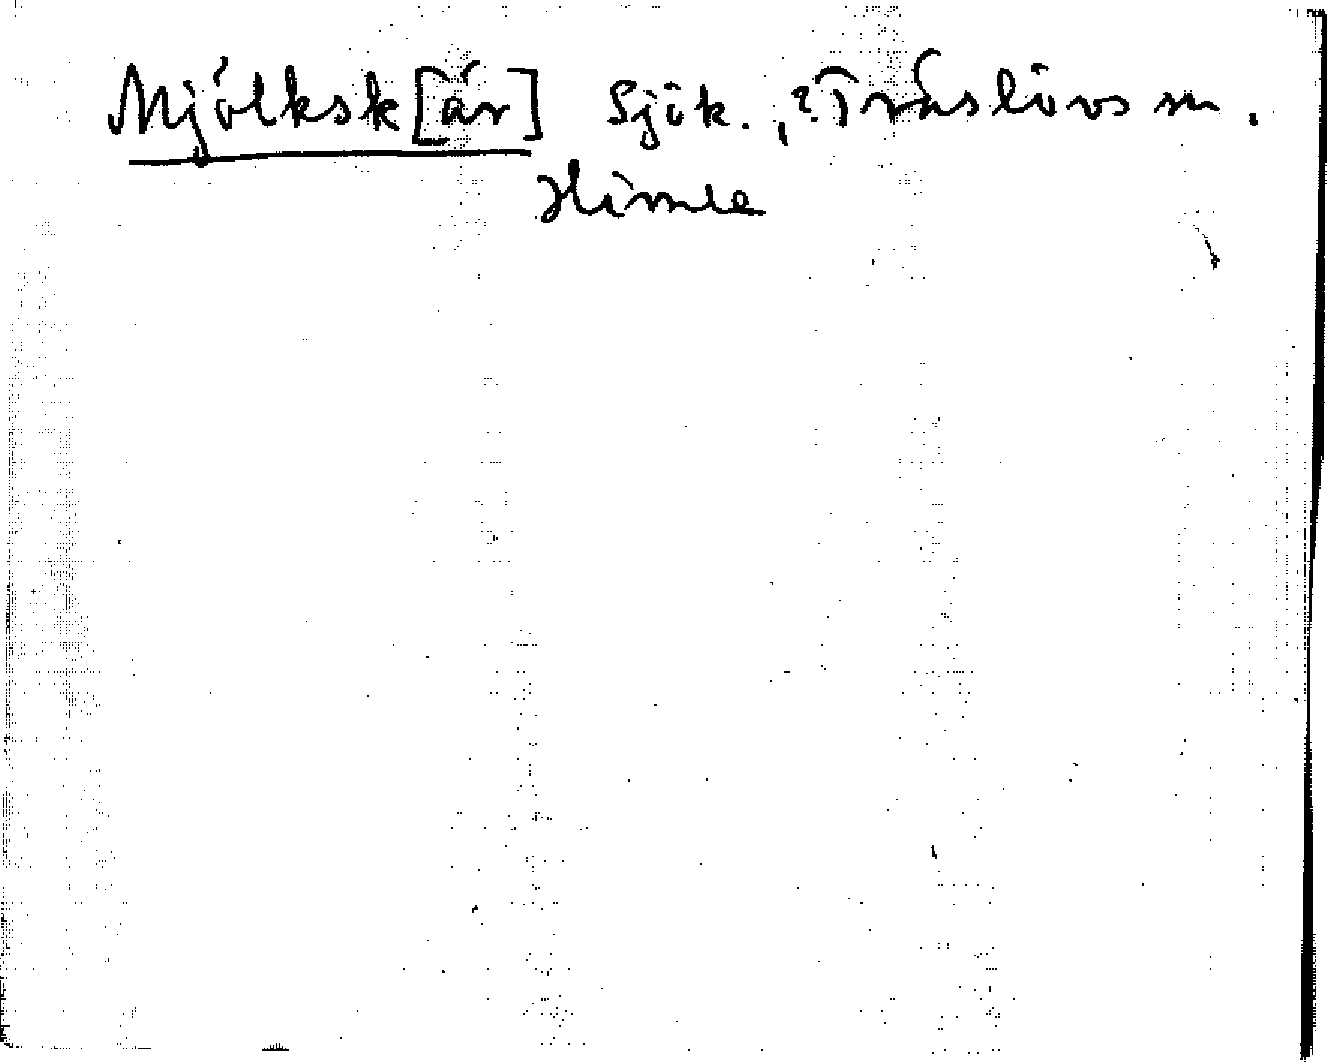 Mjölksk[är] Sjök., ?Träslövs sn.
Himle